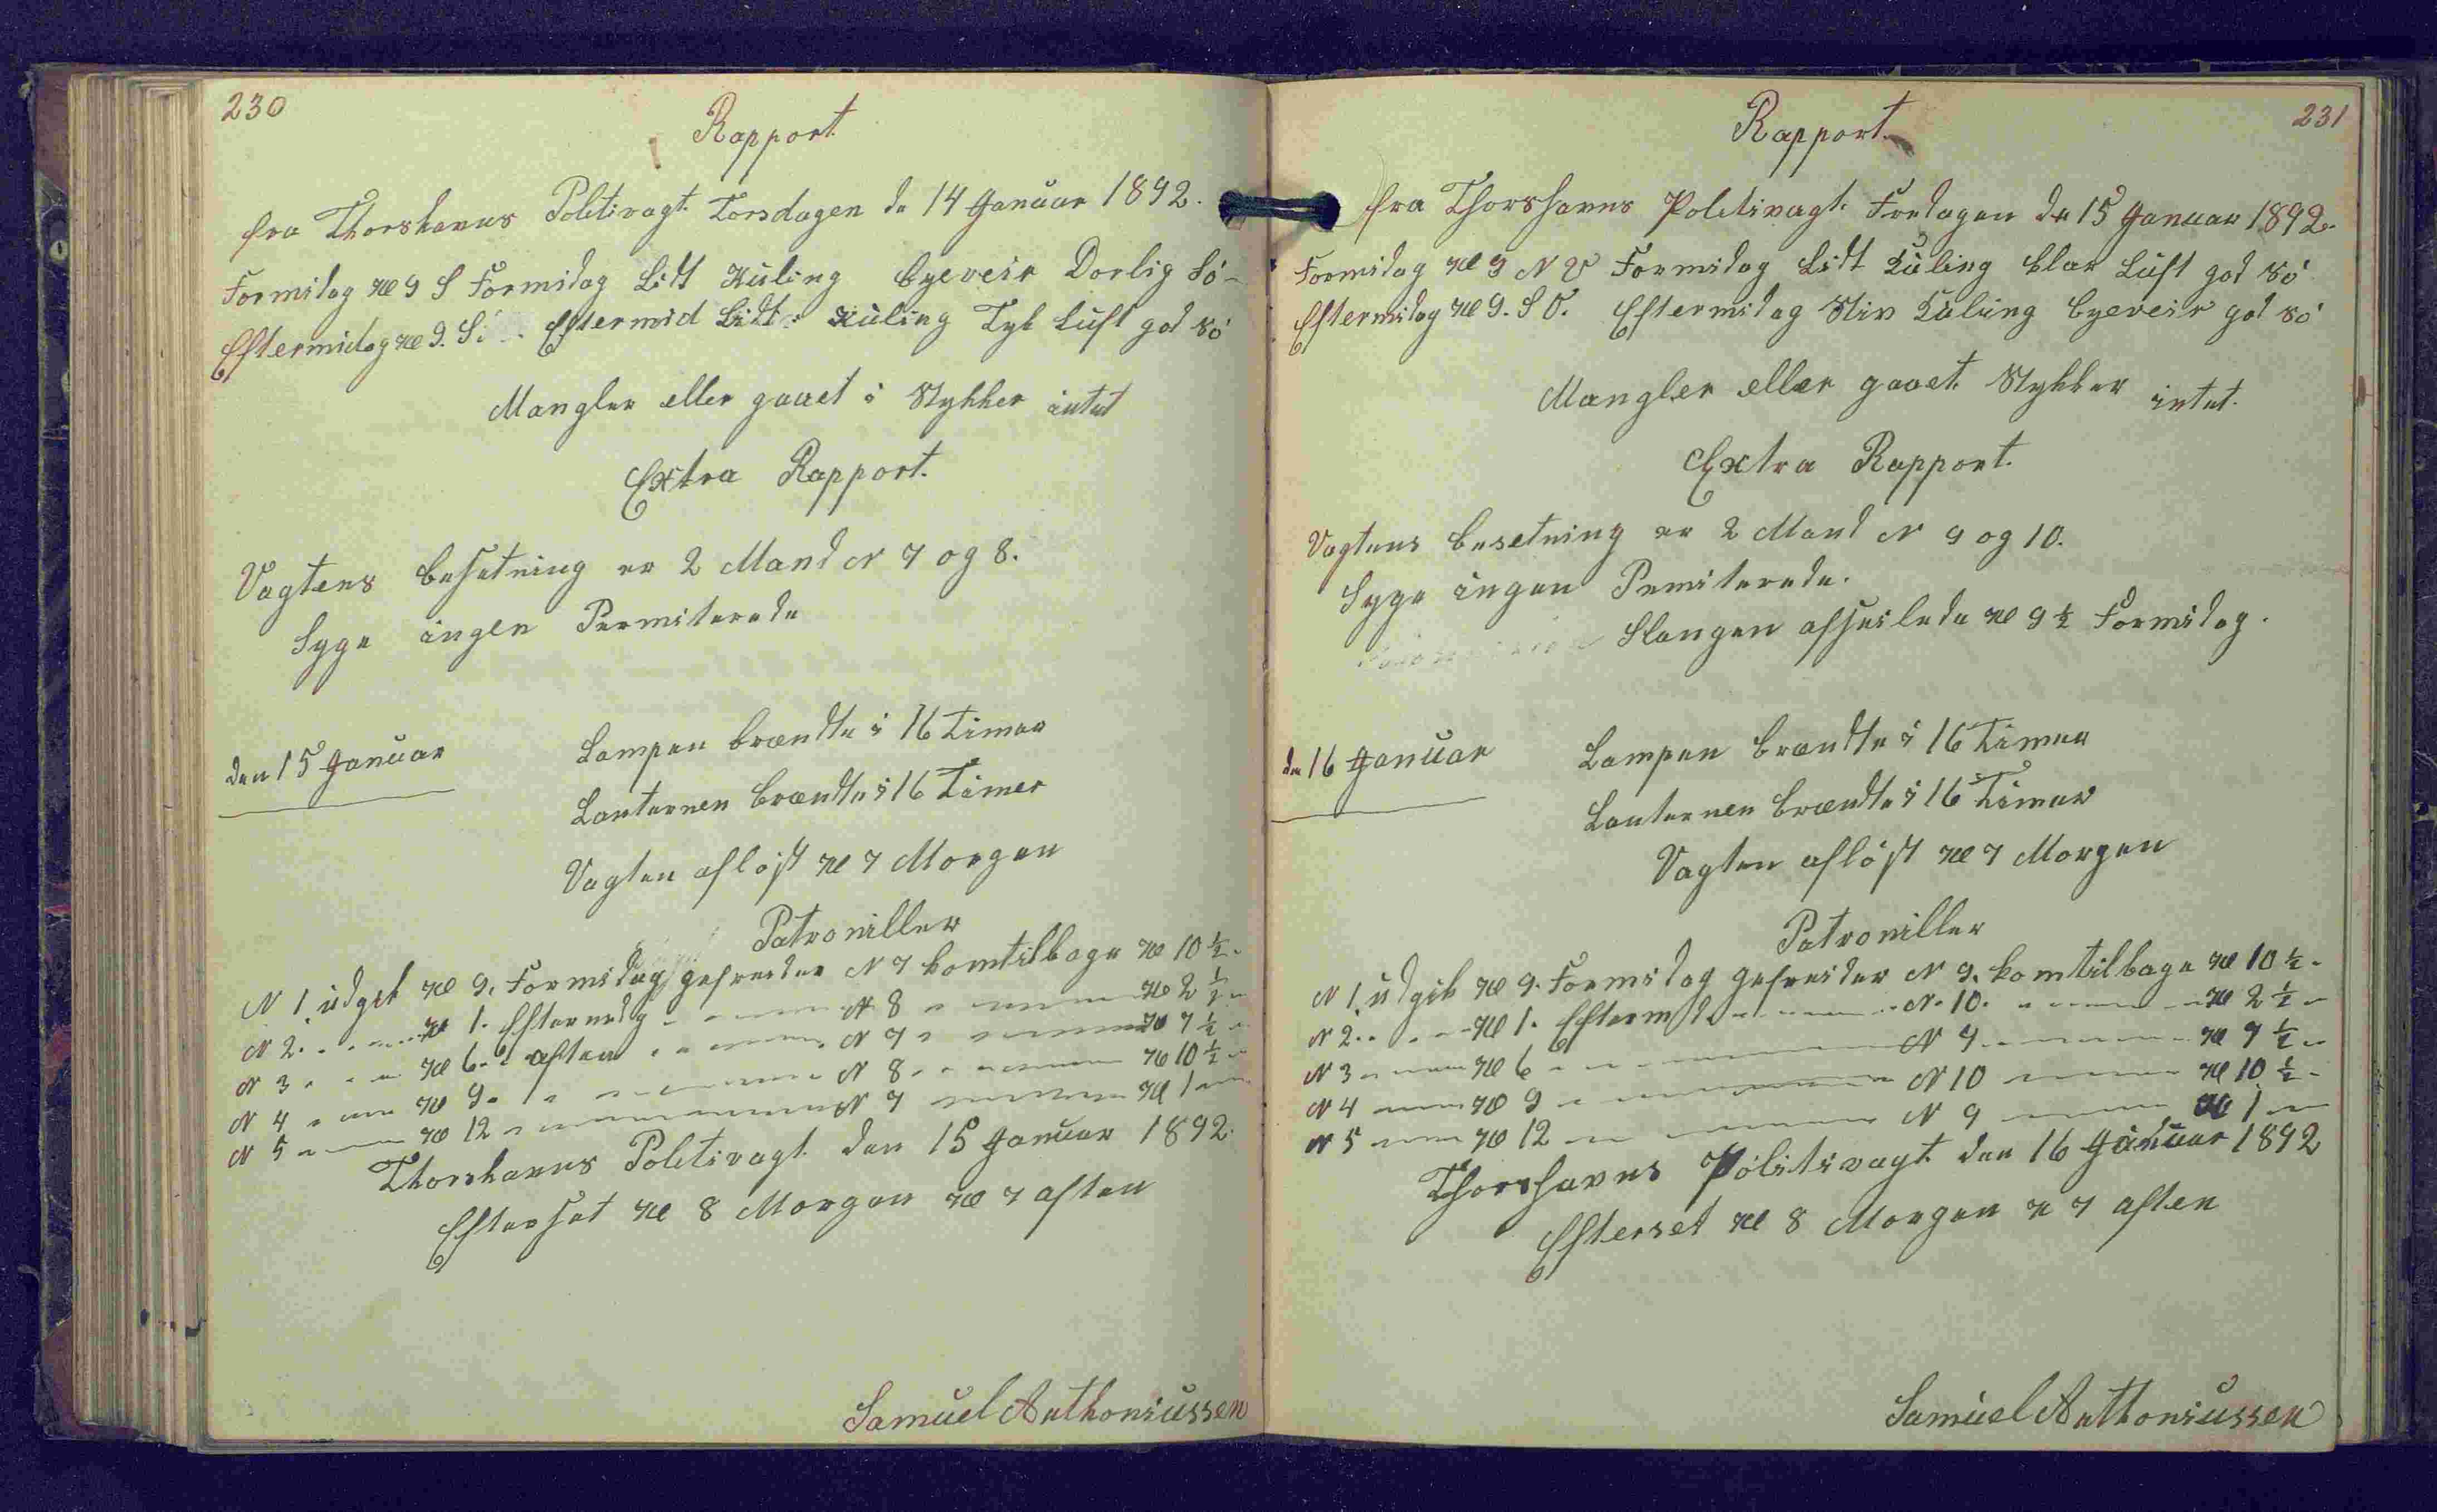 230
Rapport
fra Thorshavns Politivagt. Torsdagen de 14 Januar 1892.
Formidag Kl 9 S Formidag Lidt Kuling byeveir Dorlig Sö
Eftermidag Kl 9. S. Eftermid Lidt Kuling Tyk Luft god Sö
Mangler eller gaaet i Stykker intet
Extra Rapport.
Vagtens besetning er 2 Mand N 7 og 8.
Syge ingen Permiterede
den 15 Januar
Lampen brændte i 16 Timer
Lanternen brændte i 16 Timer
Vagten aflöst Kl 7 Morgen
Patroniller
N 1 udgik Kl 9. Formidag gefreider N 7 komtilbage Kl 10 ½
N 2 " " Kl 1. Eftermidg " " N 8 " " Kl 2 ½
N 3 " " Kl 6 " aften " " N 7 " " Kl 7 ½
N 4 " " Kl 9 " " " N 8 " " Kl 10 ½
N 5 " " Kl 12 " " " N 7 " " Kl 1
Thorshavns Politivagt. den 15 Januar 1892.
Efterset Kl 8 Morgen Kl 7 aften
Samuel Anthoniussen
231
Rapport.
fra Thorshavns Politivagt. Fredagen de 15 Januar 1892.
Formidag Kl 9 N V Formidag Lidt Kuling klar Luft god Sö
Eftermidag Kl 9. S O. Eftermidag Stiv Kuling byeveir god Sö
Mangler eller gaaet. Stykker intet.
Extra Rapport.
Vagtens besetning er 2 Mand N 9 og 10.
Syge ingen Pemiterede.
Slangen afseilede Kl 9 ½ Formidag.
de 16 Januar
Lampen brændte i 16 Timer
Lanternen brændte i 16 Timer
Vagten aflöst Kl 7 Morgen
Patroniller
N 1 udgik Kl 9. Formidag gefreider N 9. komtilbage Kl 10 ½
N 2 " " Kl 1. Eftermid " " N. 10. " " Kl 2 ½
N 3 " " Kl 6 " " " N 9 " " Kl 7 ½
N 4 " " Kl 9 " " " N 10 " " Kl 10 ½
N 5 " " Kl 12 " " " N 9 " " Kl 1
Thorshavns Politivagt. den 16 Januar 1892
Efterset Kl 8 Morgen K 7 aften
Samuel Anthoniussen